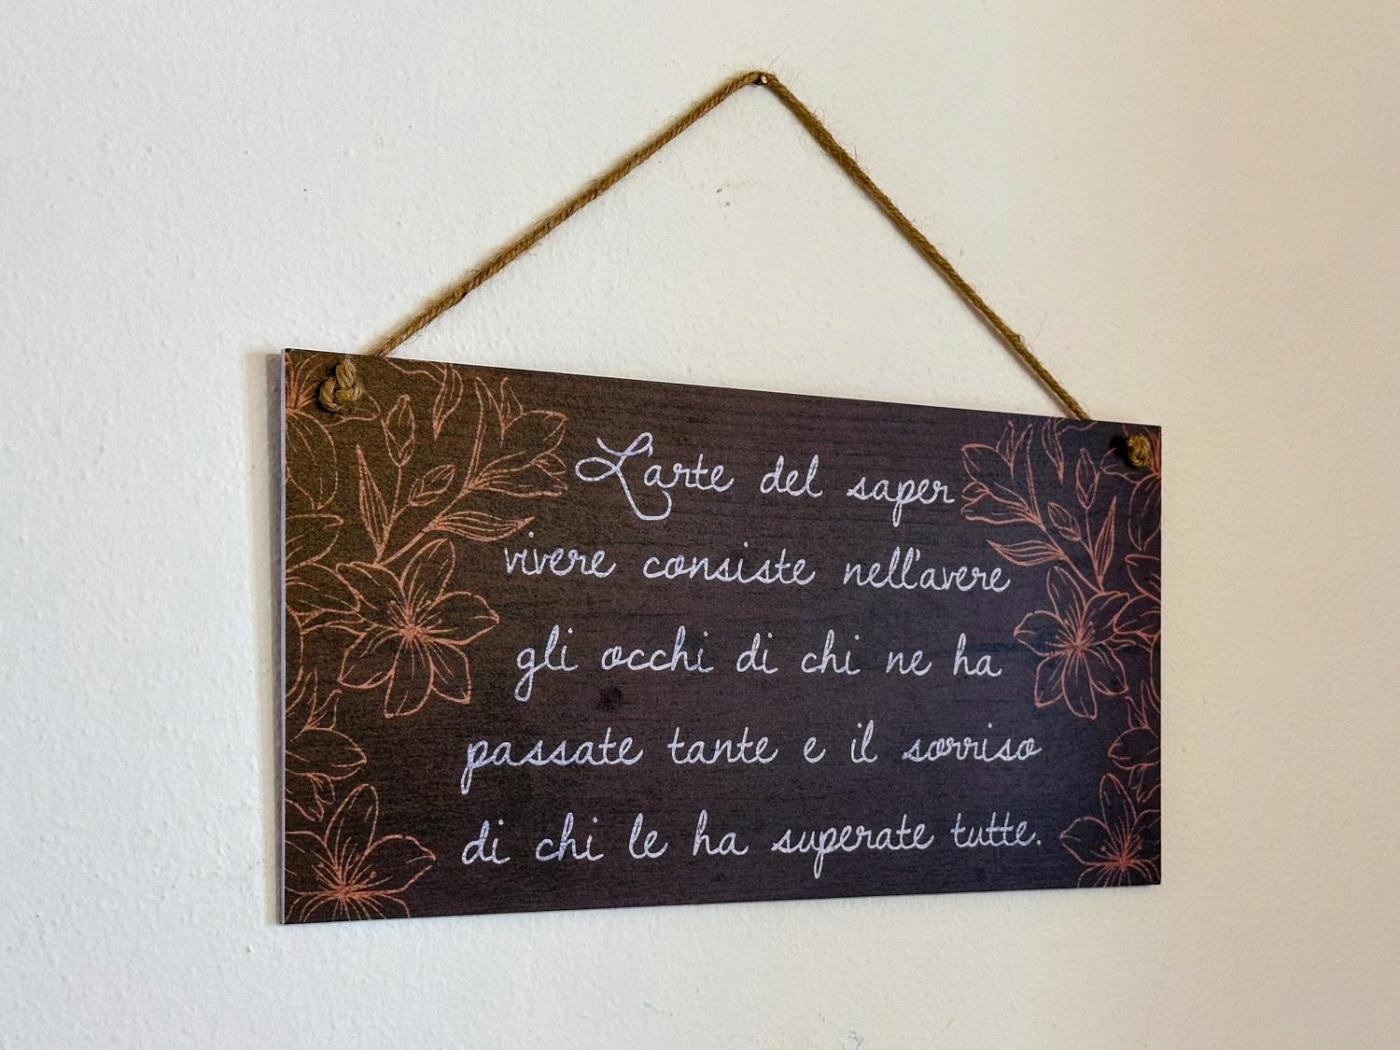 L'arte del saper
vivere consiste nell'avere
gli occhi di chi ne ha
passate tante e il sorriso
di chi le ha superate tutte.